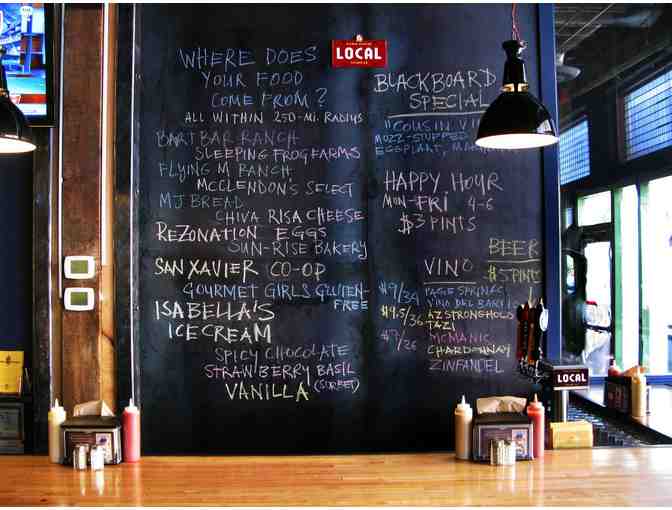 LOCAL
WHERE DOES
YOUR FOOD
COME FROM?
ALL WITHIN 250-Mi. RADIUS
BART BAR RANCH
SLEEPING FROG FARMS
FLYING M RANCH
MCCLENDON'S SELECT
MJ BREAD
CHIVA RISA CHEESE
REZONATION EGGS
SUN-RISE BAKERY
SAN XAVIER CO-OP
GOURMET GIRLS GLUTEN-
FREE
ISABELLA'S
ICECREAM
SPICY CHOCOLATE
STRAWBERRY BASIL
VANILLA (SORBET)
BLACKBOARD
SPECIAL
"COUSIN
MOZZ-STUFFED
EGGPLANT,
HAPPY HOUR
MON-FRI 4-6
$3 PINTS
BEER
VINO
$9/34 PAGE SPRINGS
VINO DEL
AZ STRONGHOLD
TAZI
$7/26 MCMANIC
CHARDONNAY
ZINFANDEL
LOCAL